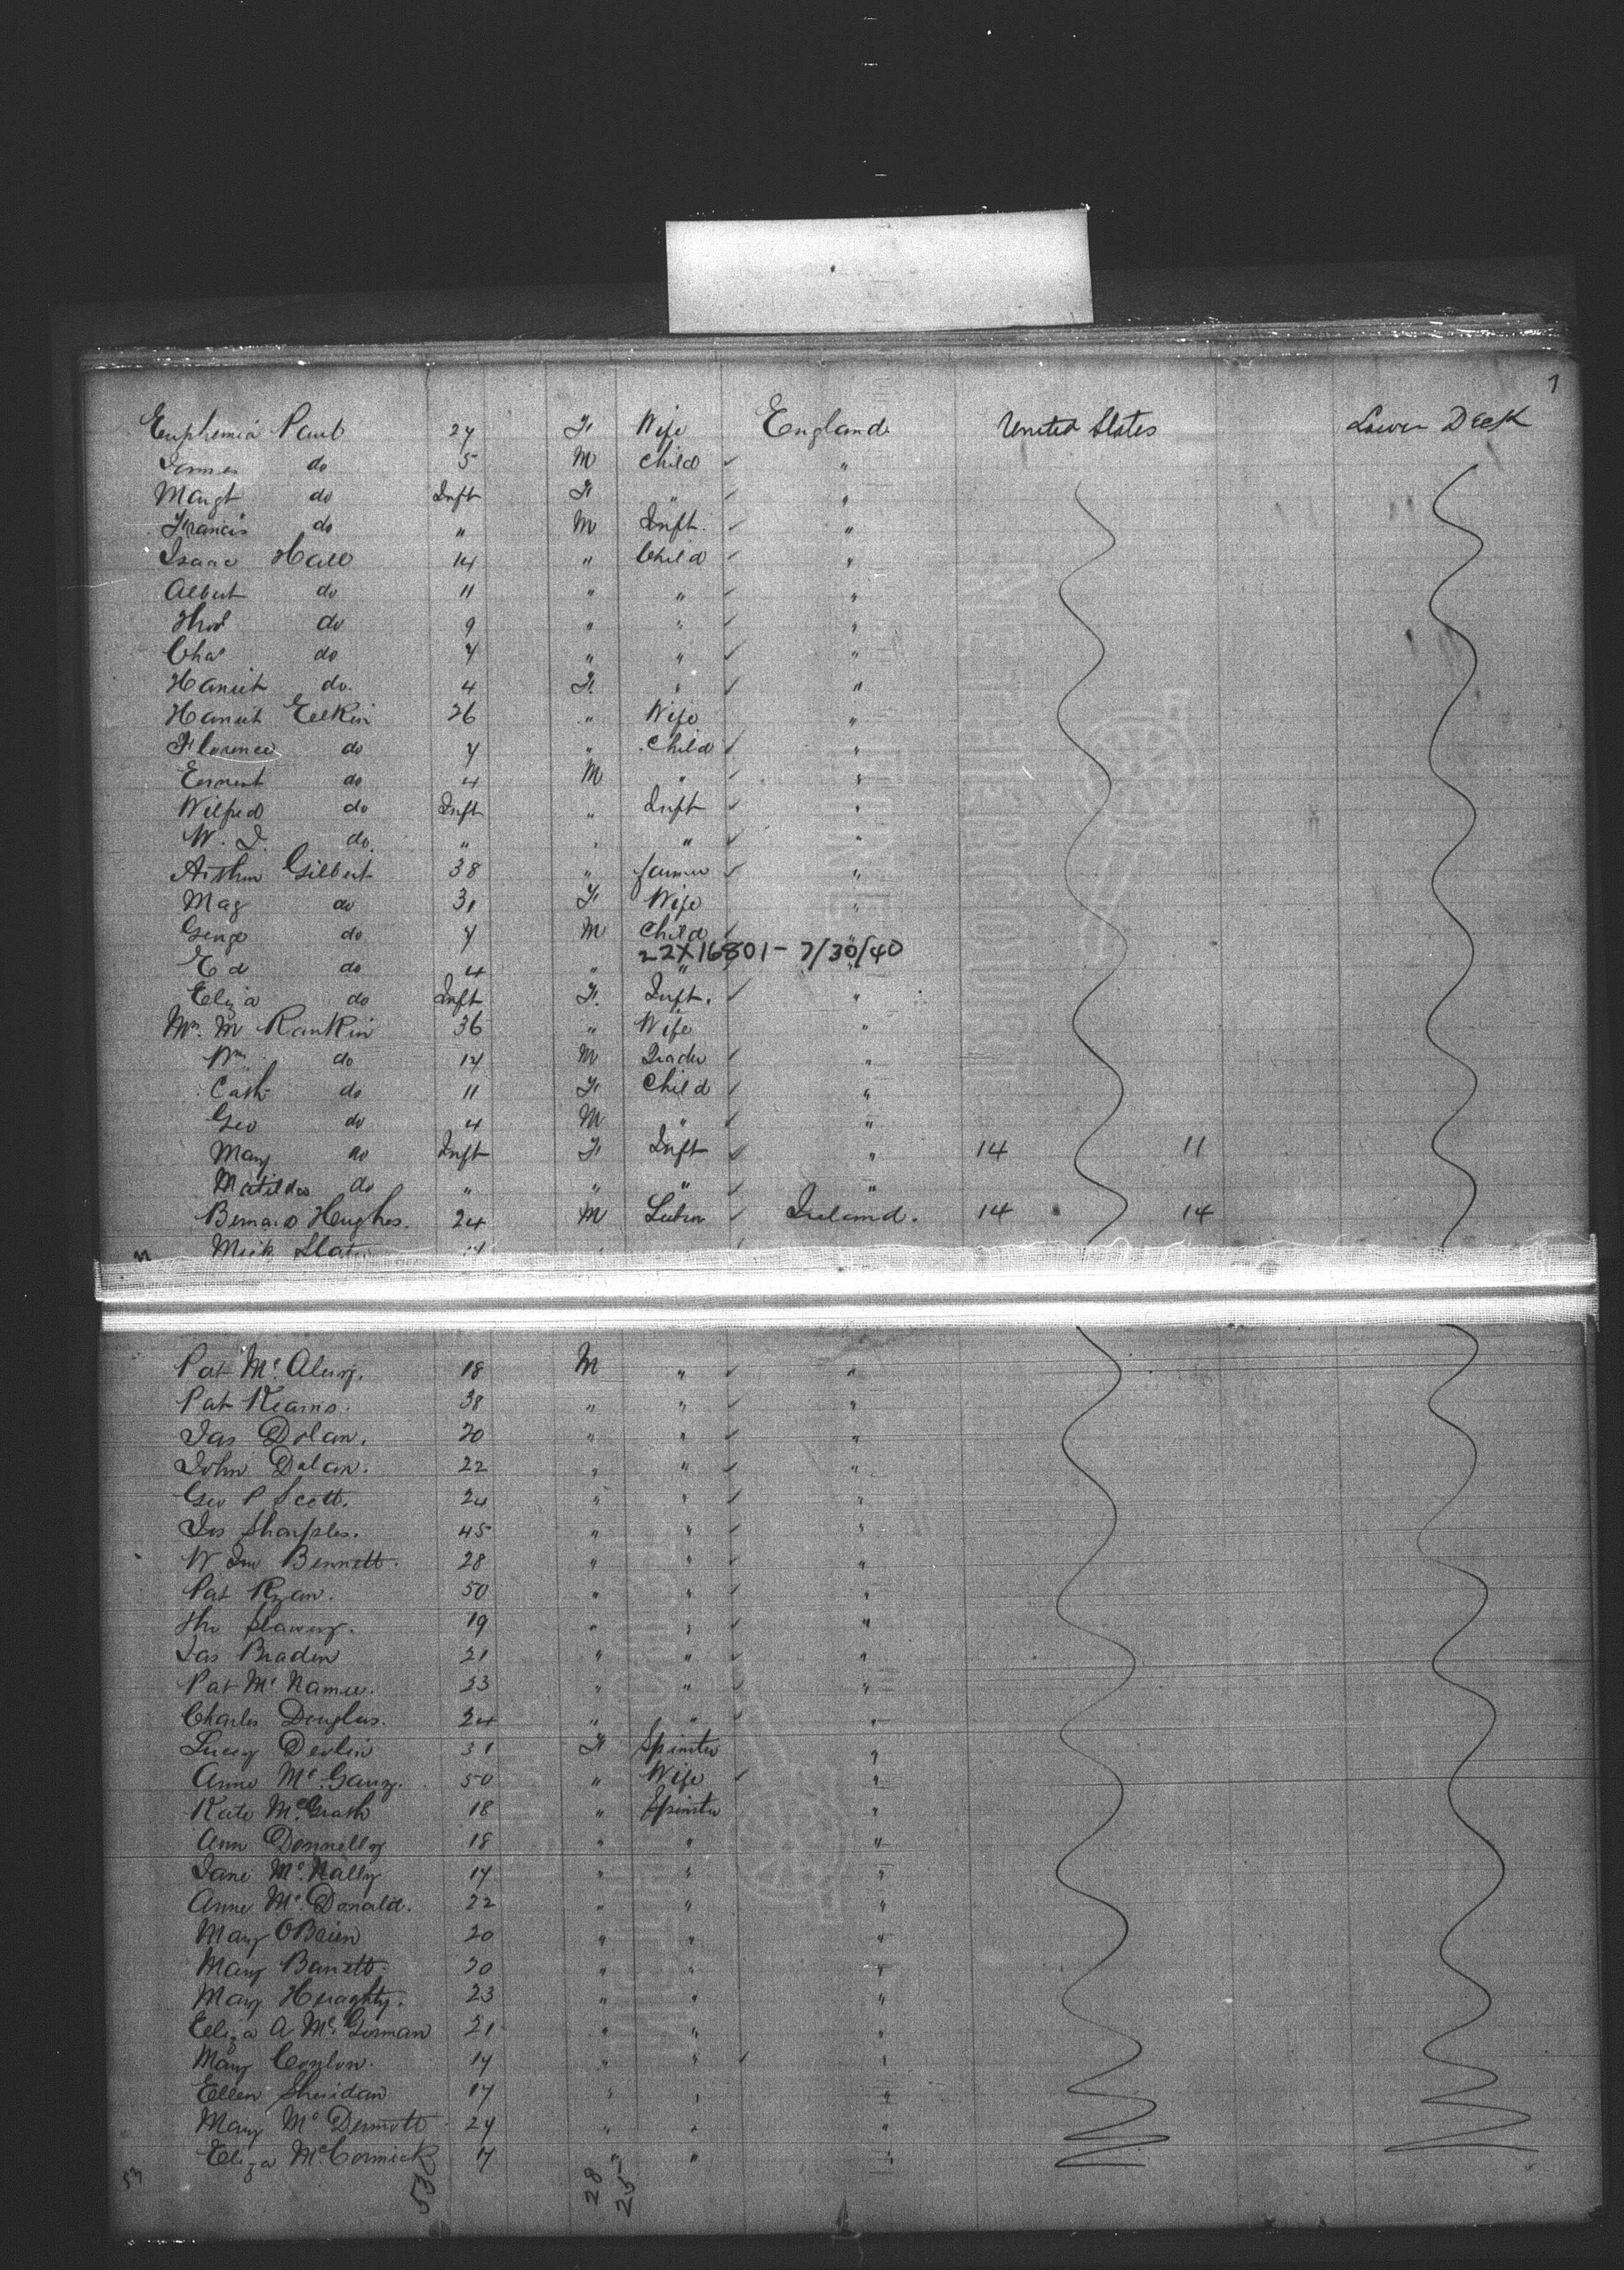 7
Euphemia Paul 27 F Wife England United States Lower Deck
James do 5 M Child ✓ "
Margt do Inft F " ✓ "
Francis do " M Inft. ✓ "
Isaac Hall 14 " Child ✓ "
Albert do 11 " " ✓ "
Thos do 9 " " ✓ "
Chas do 7 " " ✓ "
Harriet do. 4 F " ✓ "
Harriet Eelkin 26 " Wife "
Florence do 7 " Child ✓ "
Ernest do 4 M " ✓ "
Wilfred do Inft " Inft ✓ "
W. J. do. " " " ✓ "
Arthur Gilbert 38 " farmer ✓ "
Mag do 31 F Wife "
George do 7 M Child ✓ "
22X16801 - 7/30/40
Ed do 4 " " "
Eliza do Inft F. Inft. ✓ "
Mrs. M Rankin 36 " Wife "
Wm do 14 M ✓ "
Cath do 11 F Child ✓ "
Geo do 4 M " ✓ "
Mary do Inft F Inft ✓ " 14 11
Matilda do " " " ✓ "
Bernard Hughes. 24 M ✓ Ireland. 14 14
Mick
Pat 18 M " ✓ "
Pat Kearns. 38 " " ✓ "
Jas Dolan. 20 " " ✓ "
John Dolan. 22 " " ✓ "
Geo P Scott. 24 " " ✓ "
Jos Sharples. 45 " " ✓ "
W Jno Bennett. 28 " " ✓ "
Pat Ryan. 50 " " ✓ "
Tho 19 " " ✓ "
Jas Braden 21 " " ✓ "
Pat McNamee. 23 " " ✓ "
Charles Douglas. 24 " " ✓ "
Lucy Devlin 31 F Spinster "
Anne McGarry. 50 " Wife ✓ "
Kate McGrath 18 " Spinster "
Ann Donnelly 18 " " "
Jane McNally 17 " " "
Anne McDonald. 22 " " "
Mary OBrien 20 " " "
Mary Barrett. 20 " " "
Mary Heraghty. 23 " " "
Eliza A McGorman 21 " " "
Mary Conlon. 17 " " ✓ "
Ellen Sheridan 17 " " "
Mary McDermott 27 " " "
Eliza McCormick 17 " " "
53 53 28 25